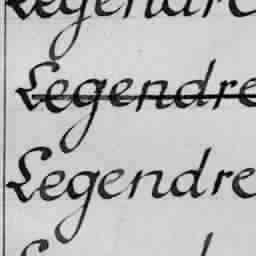 Legendre
Legendre
Legendre